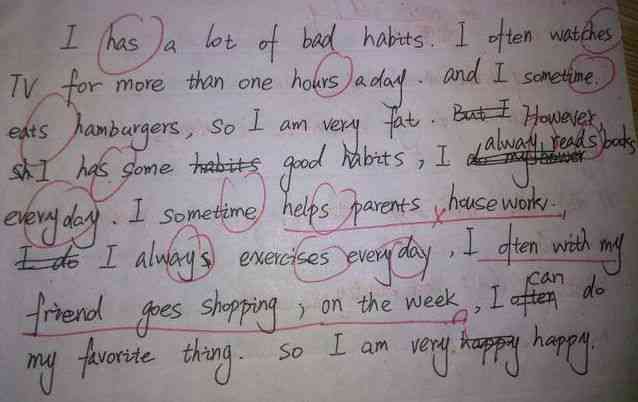 I has a lot of bad habits. I often watches
TV for more than one hours a day. and I sometime.
eats hamburgers, so I am very fat. But I However,
sh I has some habits good habits, I alway reads books
everyday. I sometime helps parents housework.,
I do I always exercises everyday, I often with my
friend goes shopping, on the week, I often can do
my favorite thing. so I am very happy happy.